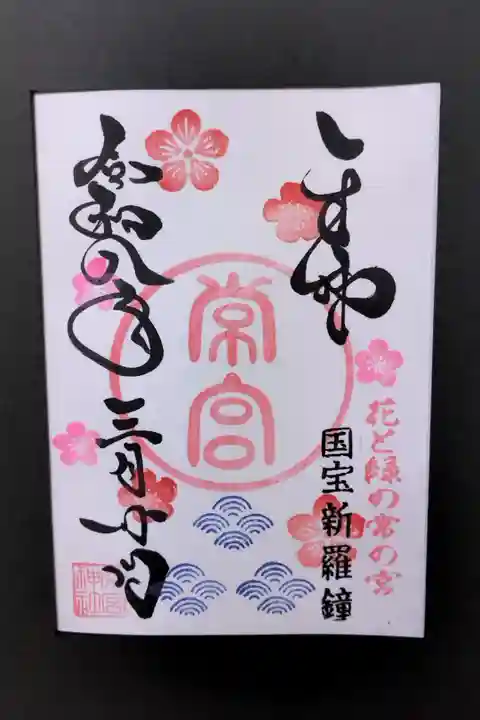 花と緑の常の宮
国宝新羅鐘
常宮
令和八年三月
常宮
神社